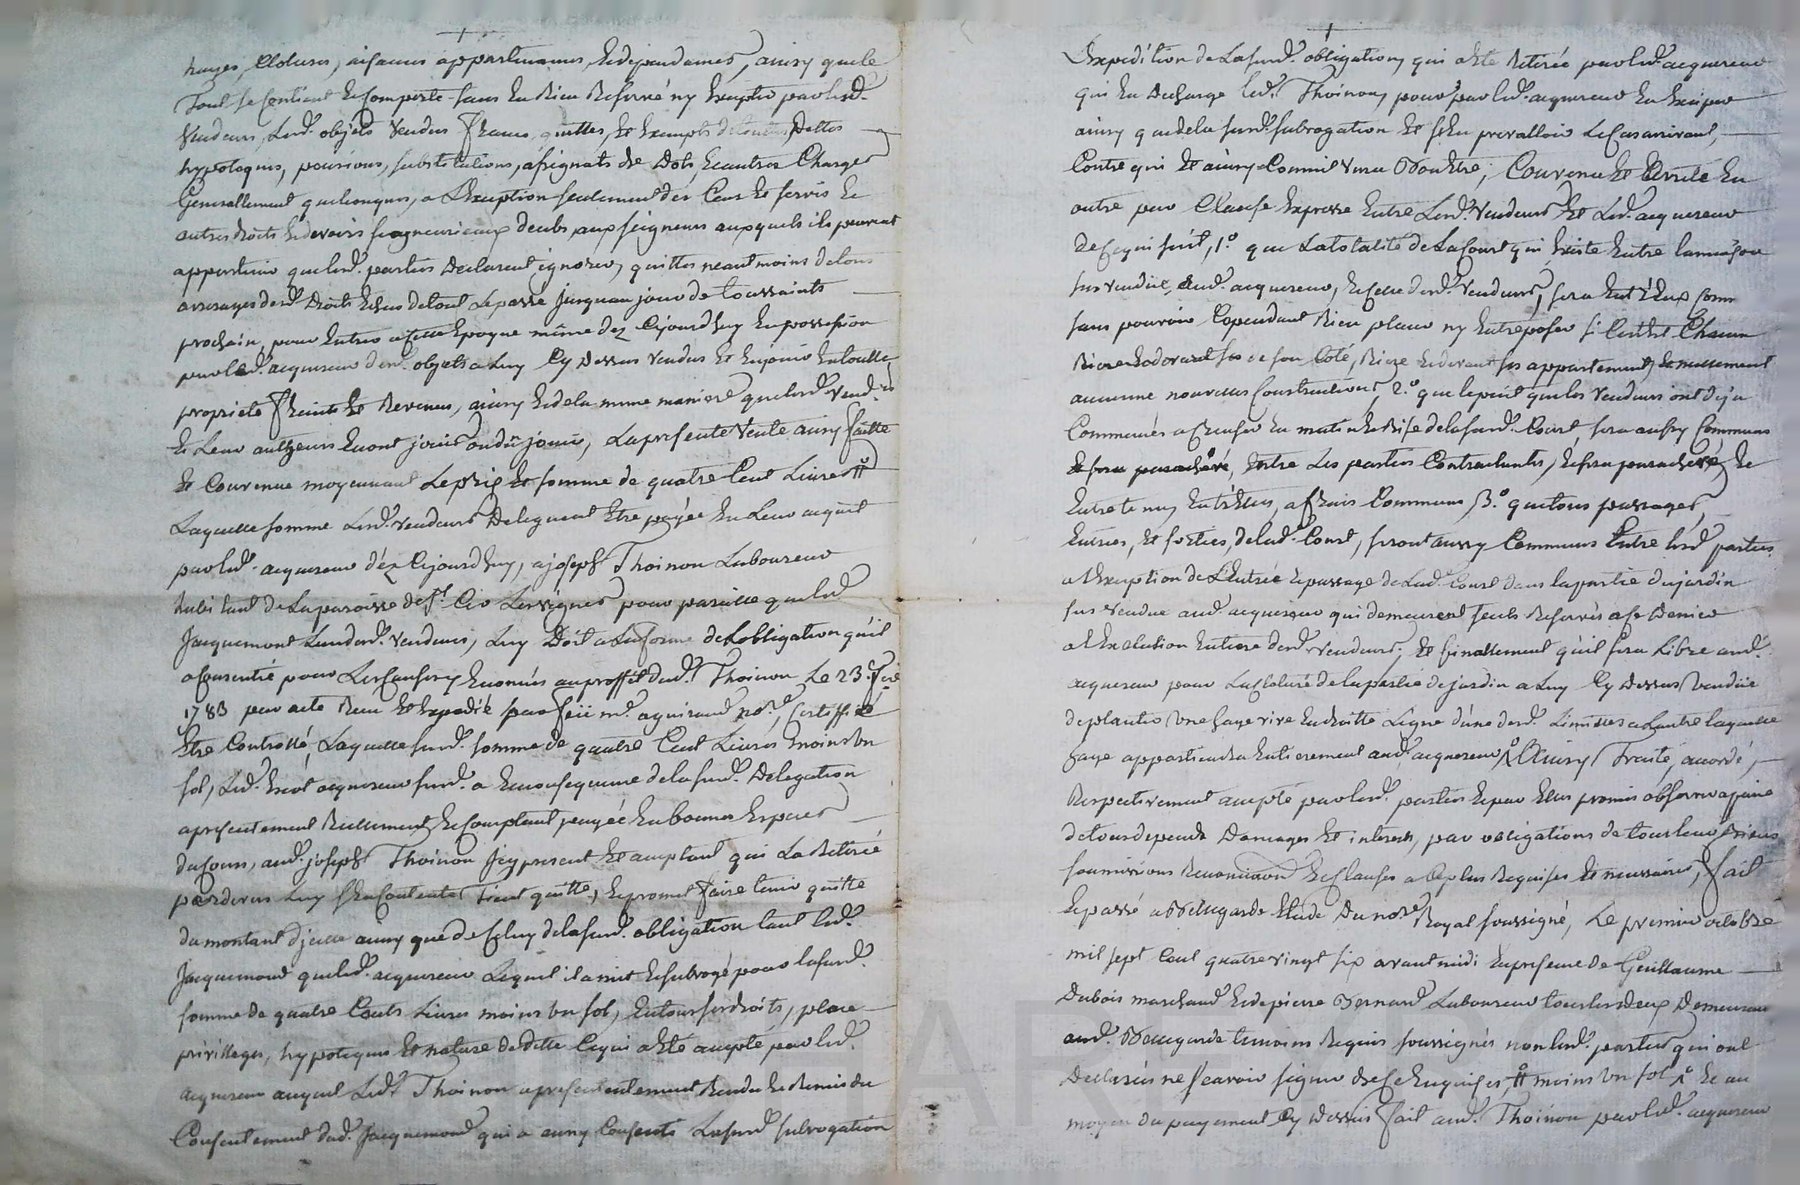 hayes, Clotures, aisances appartenances, & dependances, ainsy que le
Tout se Contient & Comporte sans En Rien Reservé ny Excepté par lesd.
Vendeurs, Lesd. objets Vendus francs, quittes, Et Exempts de toutes Dettes
hypoteques, pensions, substitutions, assignats de Dots, & autres Charges
Generallement quelconques, a L'Exception seulement des Cens Et servis Et
autres droits & devoirs seigneuriaux deubs aux seigneurs auxquels ils peuvent
appartenir que lesd. parties Declarent ignorer, quittes neantmoins de tous
arrerages desd. Droits & du tout Le passé Jusqu'au jour de toussaints
prochain, pour Entrer a cette Epoque même dez Cejourdhuy En possession
par led. acquereur desd. objets a Luy Cy Dessus vendus Et En jouir En toutte
proprieté fruits Et Revenus, ainsy & de la meme maniere que lesd. vend.rs
Et Leur autheurs En ont joüis ou dû joüir, La presente Vente ainsy faitte
Et Convenue moyennant Le prix Et somme de quatre Cent Livres #
Laquelle somme Lesd. vendeurs Deleguent Etre payée En Leur acquit
par led. acquereur dèz Cejourdhuy, a joseph Thoinon Laboureur
habitant de La paroisse de St. Cir Les vignes pour pareille que led.
Jacquemont L'un desd. vendeurs, Luy Doit a La forme de L'obligation qu'il
a Consentie pour Les Causes y Enoncées au proffit dud. Thoinon Le 23.
1783 par acte Recu Et Expedié par feu me. aguiraud nore., Certiffié
Etre Controllé, Laquelle susd. somme de quatre Cent Livres moins Un
sol, Led. acquereur susd. a En consequence de la susd. Delegation
a presentement Reellement & Comptant payée En bonnes Especes
du Cours, aud. joseph Thoinon Icy present Et acceptant qui L'a Retirée
par devers Luy s'En Contente Tient quitte, & promet faire tenir quitte
du montant d'jcelle ainsy que de Celuy de la susd. obligation tant led.
Jacquemont que led. acquereur Lequel il a mit & subrogé pour la susd.
somme de quatre Cents Livres moins Un sol, En tous ses droits, place
privilleges, hypoteques Et nature de dette Ce qui a Eté accepté par led.
acquereur auquel Led. Thoinon a presentement Rendu & Remis du
Consentement dud. Jacquemont qui a ainsy Consenti La susd. subrogation
L'Expedition de La susd. obligation, qui a Eté Retirée par led. acquereur
qui En Decharge led. Thoinon, pour par led. acquereur En Exiper
ainsy que de la susd. subrogation Et s'En prevalloir Le Cas arrivant,
Contre qui Et ainsy Comme verra Bon Etre, Convenu Et arreté En
outre par Clause Expresse Entre Lesd. Vendeurs Et Led. acquereur
de Ce qui suit, 1o. que La totalité de La Court qui Existe Entre la maison
sus vendüe, aud. acquereur, & Celle desd. vendeurs, sera Entr'Eux Comm
sans pouvoir Cependant Rien placer ny Entreposer si Cen'Est Chacun
Riere & devant soy de son Coté, Riere & devant ses appartements, Et nullement
aucunne nouvelles Constructions, 2o. que le puit que les Vendeurs ont deja
Commencés a Creuser En matin & Bise de la susd. Court sera aussy Commun
Entre Les parties Contractantes, & sera parachevé, Et
Entretenu Entr'Elles, a frais Communs, 3o. que tous passages,
Entrées, Et sorties, de lad. Court, seront aussy Communs Entre lesd. parties
a L'Exception de L'Entrée & passage de Lad. Court dans la partie du jardin
sus vendue aud. acquereur qui demeurent seuls Reservés a Ce Dernier
a L'Exclution Entiere desd. vendeurs, Et finallement qu'il sera Libre aud.
acquereur pour La Cloture de la partie de jardin a Luy Cy Dessus vendüe
de planter Une haye vive En droitte Ligne d'une desd. Limittes a L'autre laquelle
haye appartiendra Entierement aud. acquereur, Ainsy Traité, accordé,
Respectivement accepté par lesd. parties & par Elles promis observer a peine
de tous depends Damages Et interets, par obligations de tous leurs Biens
soumissions Renonciations & Clauses a Ce plus Requises Et necessaires, fait
& passé a Bellegarde Etude Du nore. Royal soussigné, Le premier octobre
mil sept Cent quatre vingt six avant midi En presence de Guillaume
Dubois marchand & de pierre Bernard Laboureur tous les deux Demeurans
aud. Bellegarde temoins Requis soussignés non lesd. parties qui ont
Declarés ne sçavoir signer de Ce Enquises, # moins Un sol Et au
moyen du payement Cy Dessus fait aud. Thoinon par led. acquereur